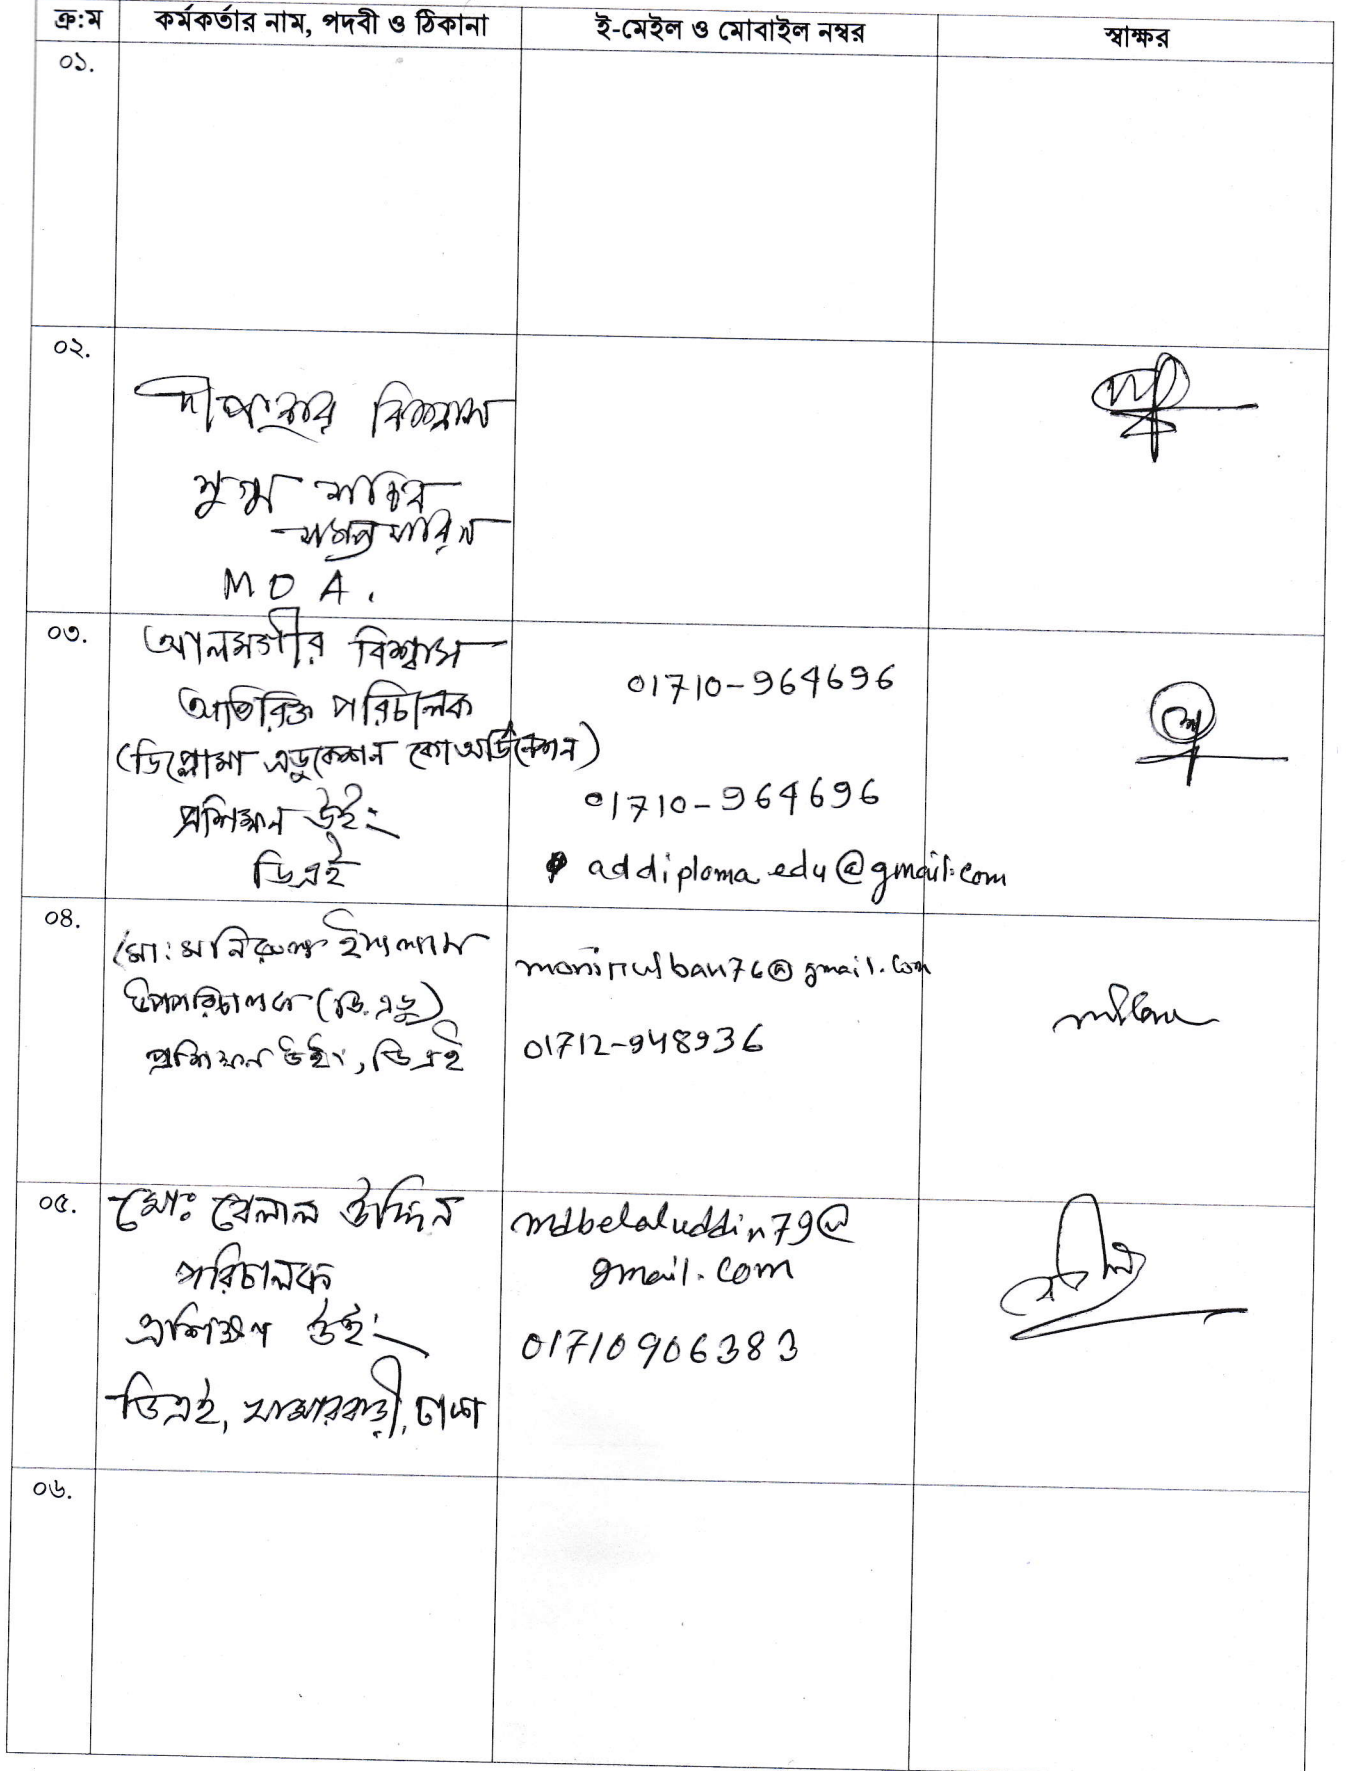 ক্র:ম কর্মকর্তার নাম, পদবী ও ঠিকানা ই-মেইল ও মোবাইল নম্বর স্বাক্ষর
০১.
০২.
দীপংকর বিশ্বাস
যুগ্ম সচিব
সম্প্রসারন
MOA.
০৩.
আলমগীর বিশ্বাস
অতিরিক্ত পরিচালক
(ডিপ্লোমা এডুকেশন কোঅর্ডিনেশন)
প্রশিক্ষন উইং
ডিএই
01710-964696
01710-964696
addiploma.edu@gmail.com
০৪.
মো: মনিরুল ইসলাম
উপপরিচালক (ডি.এডু)
প্রশিক্ষন উইং, ডিএই
01712-948936
০৫.
মোঃ বেলাল উদ্দিন
পরিচালক
প্রশিক্ষণ উইং
ডিএই, খামারবাড়ী, ঢাকা
mdbelaluddin79@
gmail.com
01710906383
০৬.